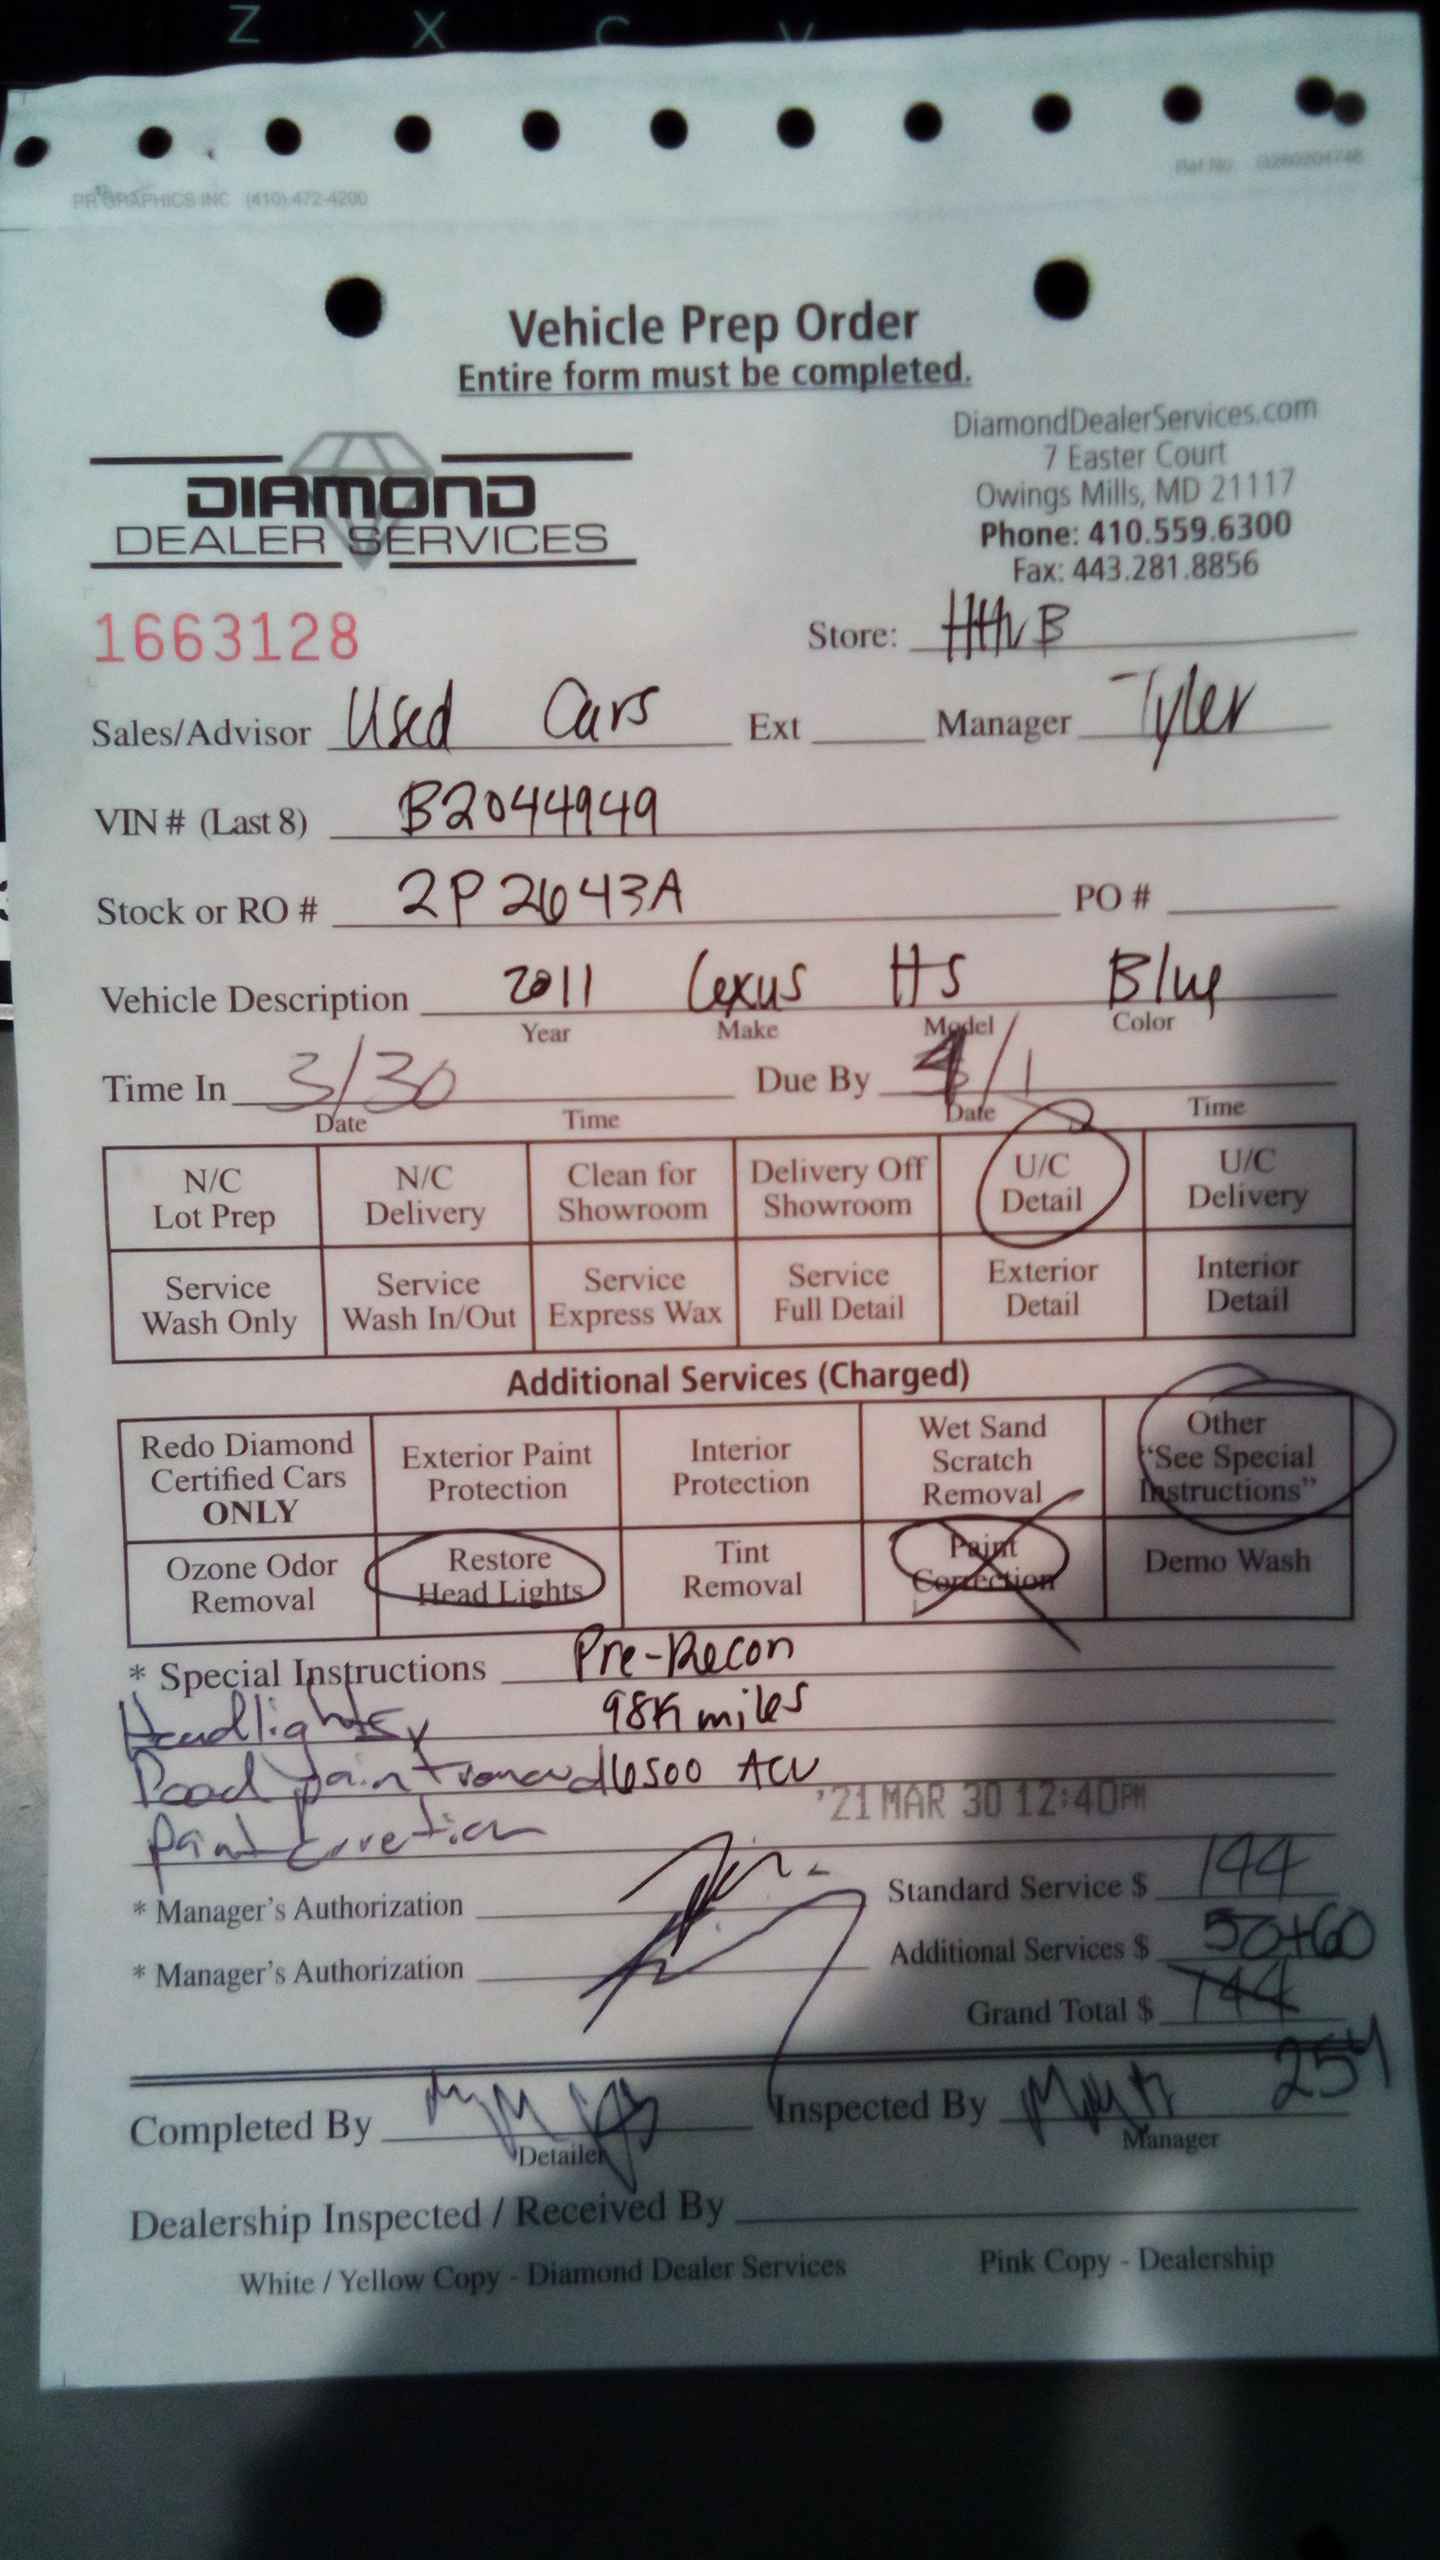 Z X C V
PR GRAPHICS INC (410) 472-4200
Ref No.
Vehicle Prep Order
Entire form must be completed.
DiamondDealerServices.com
7 Easter Court
Owings Mills, MD 21117
Phone: 410.559.6300
Fax: 443.281.8856
DIAMOND
DEALER SERVICES
1663128
Store:
Sales/Advisor Used Cars Ext Manager Tyler
VIN # (Last 8) B2044949
Stock or RO # 2P2643A PO #
Vehicle Description 2011 Lexus HS Blue
Year Make Model Color
Time In 3/30 Due By 4/1
Date Time Date Time
N/C Lot Prep N/C Delivery Clean for Showroom Delivery Off Showroom U/C Detail U/C Delivery
Service Wash Only Service Wash In/Out Service Express Wax Service Full Detail Exterior Detail Interior Detail
Additional Services (Charged)
Redo Diamond Certified Cars ONLY Exterior Paint Protection Interior Protection Wet Sand Scratch Removal Other "See Special Instructions"
Ozone Odor Removal Restore Head Lights Tint Removal Paint Correction Demo Wash
* Special Instructions Pre-Recon
Headlights 98K miles
Road paint 6500 ACV
'21 MAR 30 12:40PM
paint correction
* Manager's Authorization Standard Service $ 144
* Manager's Authorization Additional Services $ 50+60
Grand Total $ 144
254
Completed By Inspected By
Detailer Manager
Dealership Inspected / Received By
White / Yellow Copy - Diamond Dealer Services Pink Copy - Dealership